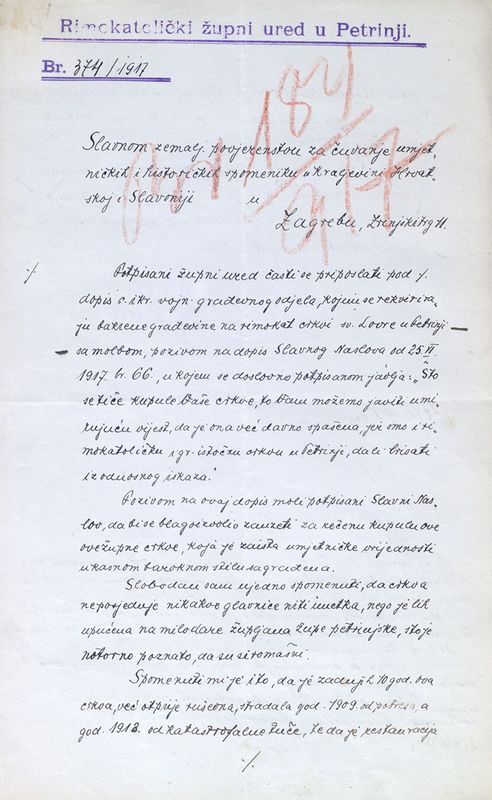 Rimokatolički župni ured u Petrinji.
Br. 374/1917
Slavnom zemalj. povjerenstvu za čuvanje umjet-
ničkih i historičkih spomenika u kraljevini Hrvat-
skoj i Slavoniji u
Zagrebu, Zrinjski trg 11.
·/.
Potpisani župni ured časti se priposlati pod ·/.
dopis c. i kr. vojn. građevnog odjela, kojim se rekvirira-
ju bakrene građevine na rimokat. crkvi sv. Lovre u Petrinji —
— sa molbom, pozivom na dopis Slavnog Naslova od 25. VI.
1917. br. 66., u kojem se doslovno potpisanom javlja: „Što
se tiče kupule Vaše crkve, to Vam možemo javiti umi-
rujuću vijest, da je ona već davno spašena, jer smo i ri-
mokatoličku i gr. istočnu crkvu u Petrinji, dali brisati
iz odnosnog iskaza.“
Pozivom na ovaj dopis moli potpisani Slavni Nas-
lov, da bi se blagoizvolio zauzeti za rečenu kupulu ove
ovežupne crkve, koja je zaista umjetničke vrijednosti
u kasnom baroknom stilu sagrađena.
Slobodan sam ujedno spomenuti, da crkva
neposjeduje nikakve glavnice niti imetka, nego je lih
upućena na milodare župljana župe petrinjske, što je
notorno poznato, da su siromašni.
Spomenuti mi je i to, da je zadnjih 10 god. ova
crkva, već otprije rušena, stradala god. 1909. od potresa, a
god. 1913. od katastrofalne tuče, te da je restauracija
·/.